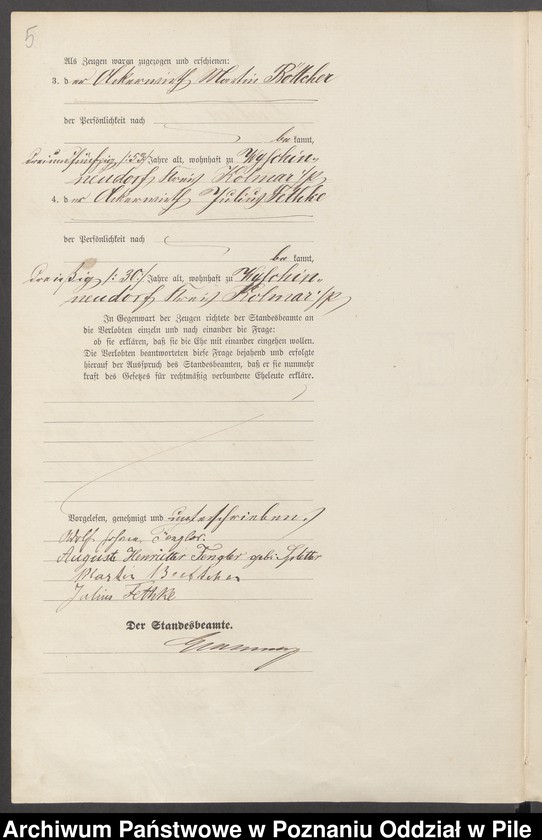 5
Als Zeugen waren zugezogen und erschienen:
3. der Ackerwirth Martin Böttcher
der Persönlichkeit nach
bekannt,
dreiundfünfzig /:53:/ Jahre alt, wohnhaft zu Wyschin-
neudorf Kreis Kolmar i/p
4. der Ackerwirth Julius Fethke
der Persönlichkeit nach
bekannt,
dreißig /:30:/ Jahre alt, wohnhaft zu Wyschin-
neudorf Kreis Kolmar i/p
In Gegenwart der Zeugen richtete der Standesbeamte an
die Verlobten einzeln und nach einander die Frage:
ob sie erklären, daß sie die Ehe mit einander eingehen wollen.
Die Verlobten beantworteten diese Frage bejahend und erfolgte
hierauf der Ausspruch des Standesbeamten, daß er sie nunmehr
kraft des Gesetzes für rechtmäßig verbundene Eheleute erkläre.
Vorgelesen, genehmigt und unterschrieben
Adolf Johann Fengler
Auguste Henriette Fengler geb.
Martin Böttcher
Julius Fethke
Der Standesbeamte.
Archiwum Państwowe w Poznaniu Oddział w Pile